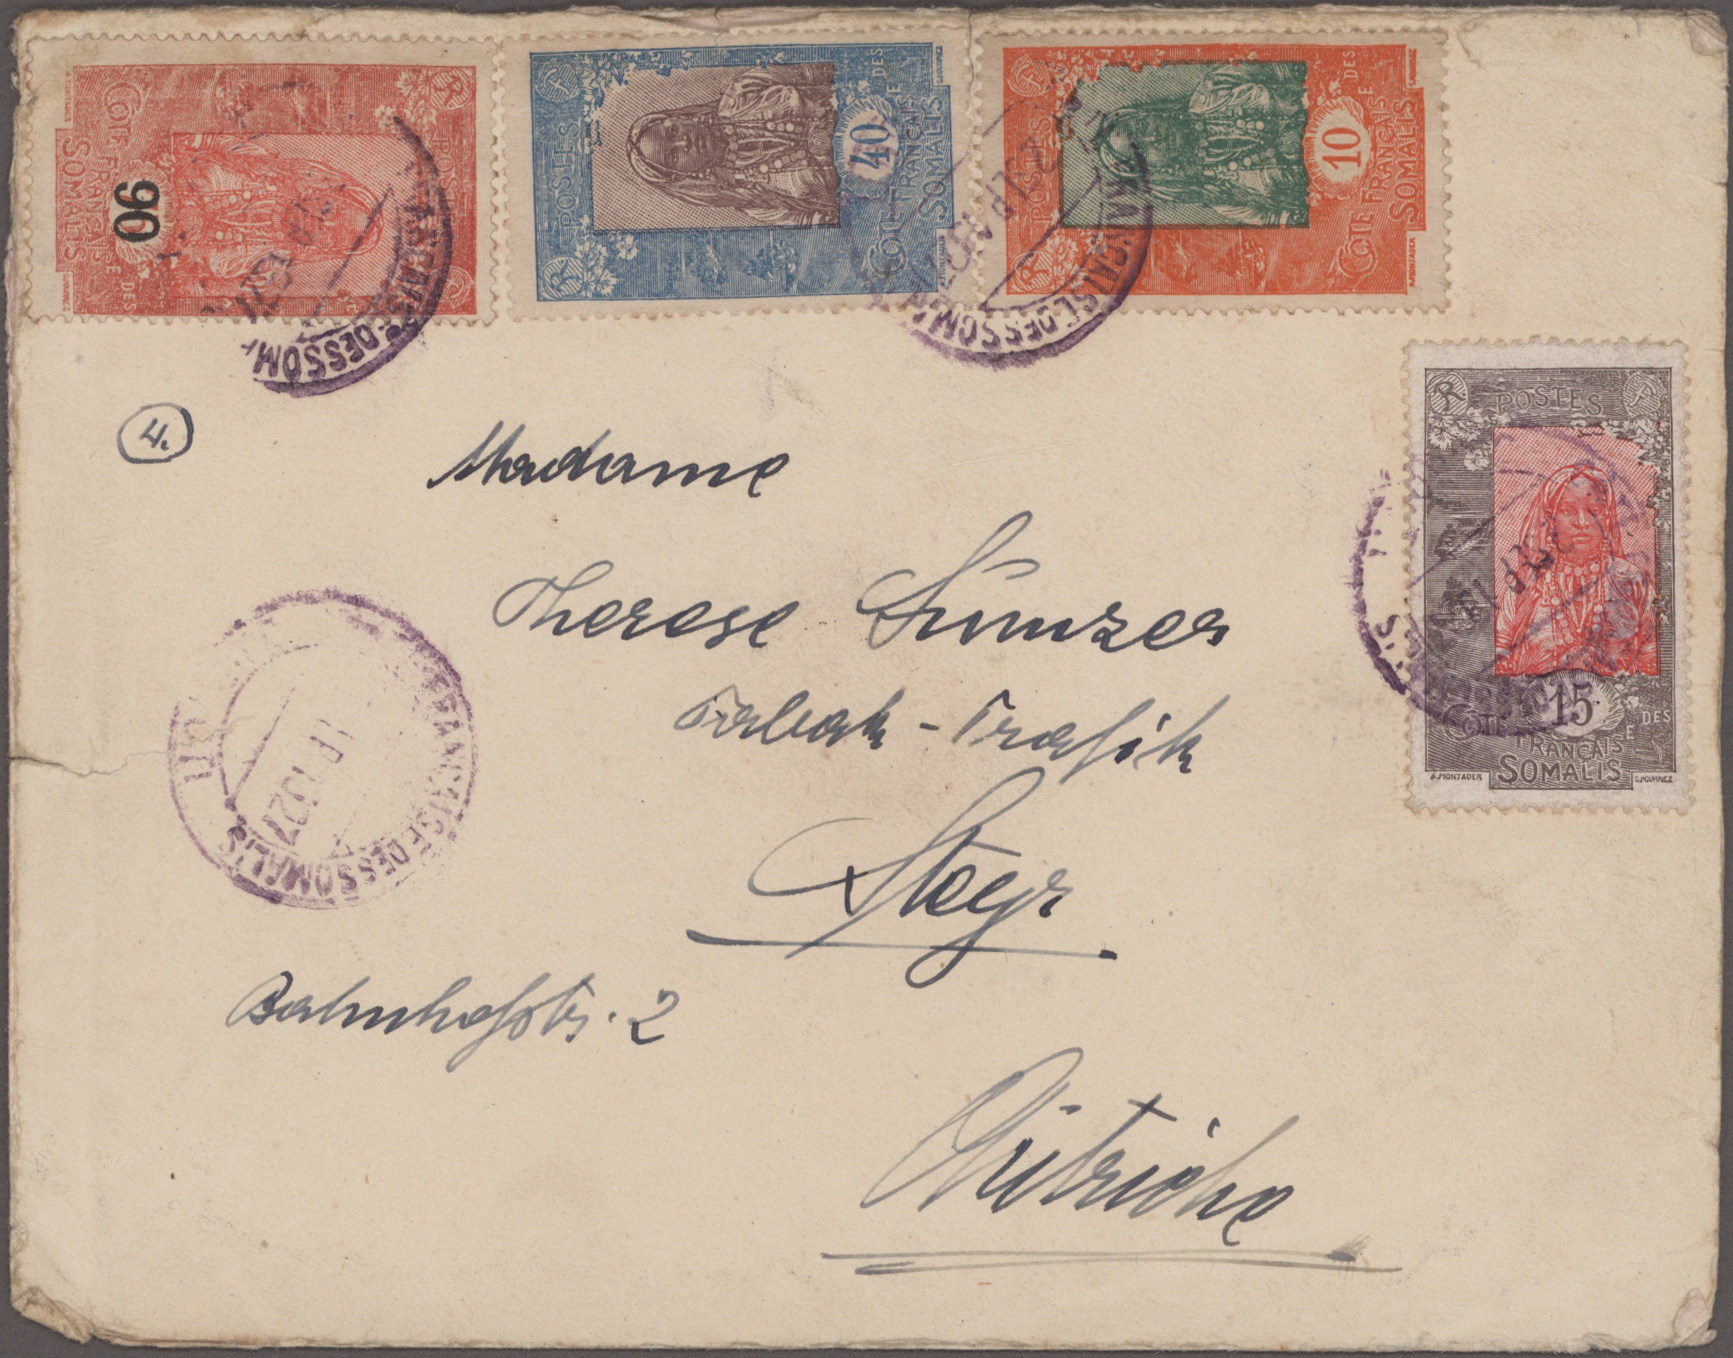 90
CÔTE FRANÇAISE DES SOMALIS
POSTES
40
CÔTE FRANÇAISE DES SOMALIS
POSTES
10
CÔTE FRANÇAISE DES SOMALIS
POSTES
FRANÇAISE DES SOM
FRANÇAISE DES SOM
4.
Madame
Therese
Tabak-Trafik
Steyr
Bahnhofstr. 2
Autriche
POSTES
15
CÔTE FRANÇAISE DES
SOMALIS
A. MONTADER
FRANÇAISE DES SOMALIS
1927